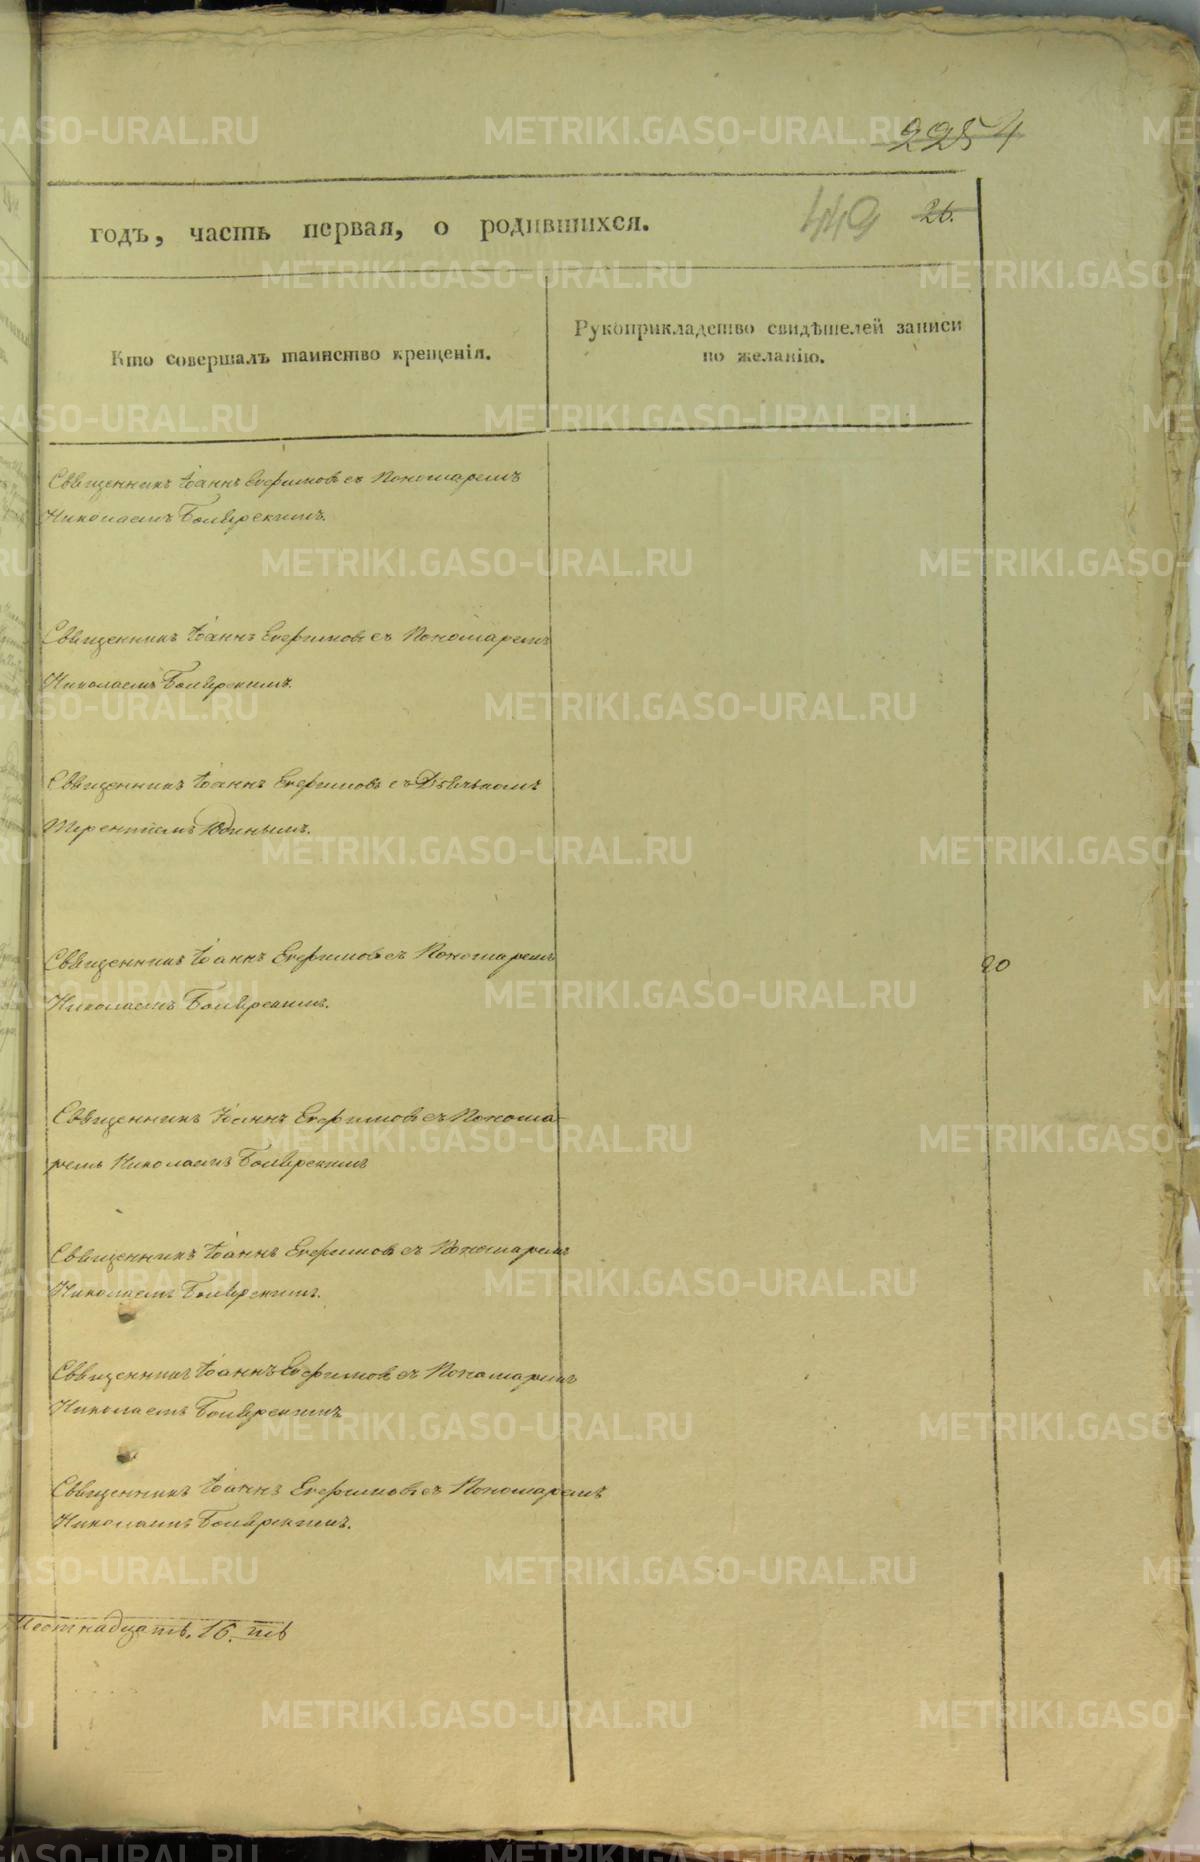 2254
годъ, часть первая, о родившихся.
449
26.
Кто совершалъ таинство крещенія.
Рукоприкладство свидѣтелей записи
по желанію.
Священникъ Іоаннъ Евфимовъ съ Пономаремъ
Николаемъ Боярскимъ.
Священникъ Іоаннъ Евфимовъ съ Пономаремъ
Николаемъ Боярскимъ.
Священникъ Іоаннъ Евфимовъ съ Дьячкомъ
Терентіемъ Юдинымъ.
Священникъ Іоаннъ Евфимовъ съ Пономаремъ
20
Николаемъ Боярскимъ.
Священникъ Іоаннъ Евфимовъ съ Понома-
ремъ Николаемъ Боярскимъ
Священникъ Іоаннъ Евфимовъ съ Пономаремъ
Николаемъ Боярскимъ.
Священникъ Іоаннъ Евфимовъ съ Пономаремъ
Николаемъ Боярскимъ
Священникъ Іоаннъ Евфимовъ съ Пономаремъ
Николаемъ Боярскимъ.
16.
METRIKI.GASO-URAL.RU